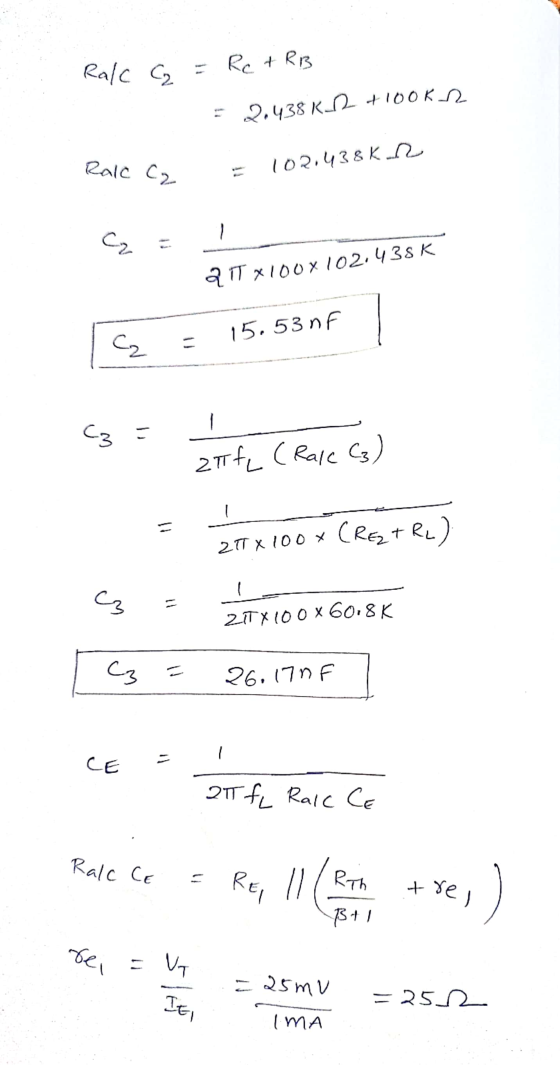 Ra/c C2 = RC + RB
= 2.438KΩ + 100KΩ
Ra/c C2 = 102.438KΩ
C2 = 1 / 2π×100×102.438K
C2 = 15.53nF
C3 = 1 / 2πfL (Ra/c C3)
= 1 / 2π×100×(RE2+RL)
C3 = 1 / 2π×100×60.8K
C3 = 26.17nF
CE = 1 / 2πfL Ra/c CE
Ra/c CE = RE1 || (RTh / β+1 + re1)
re1 = VT / IE1 = 25mV / 1mA = 25Ω